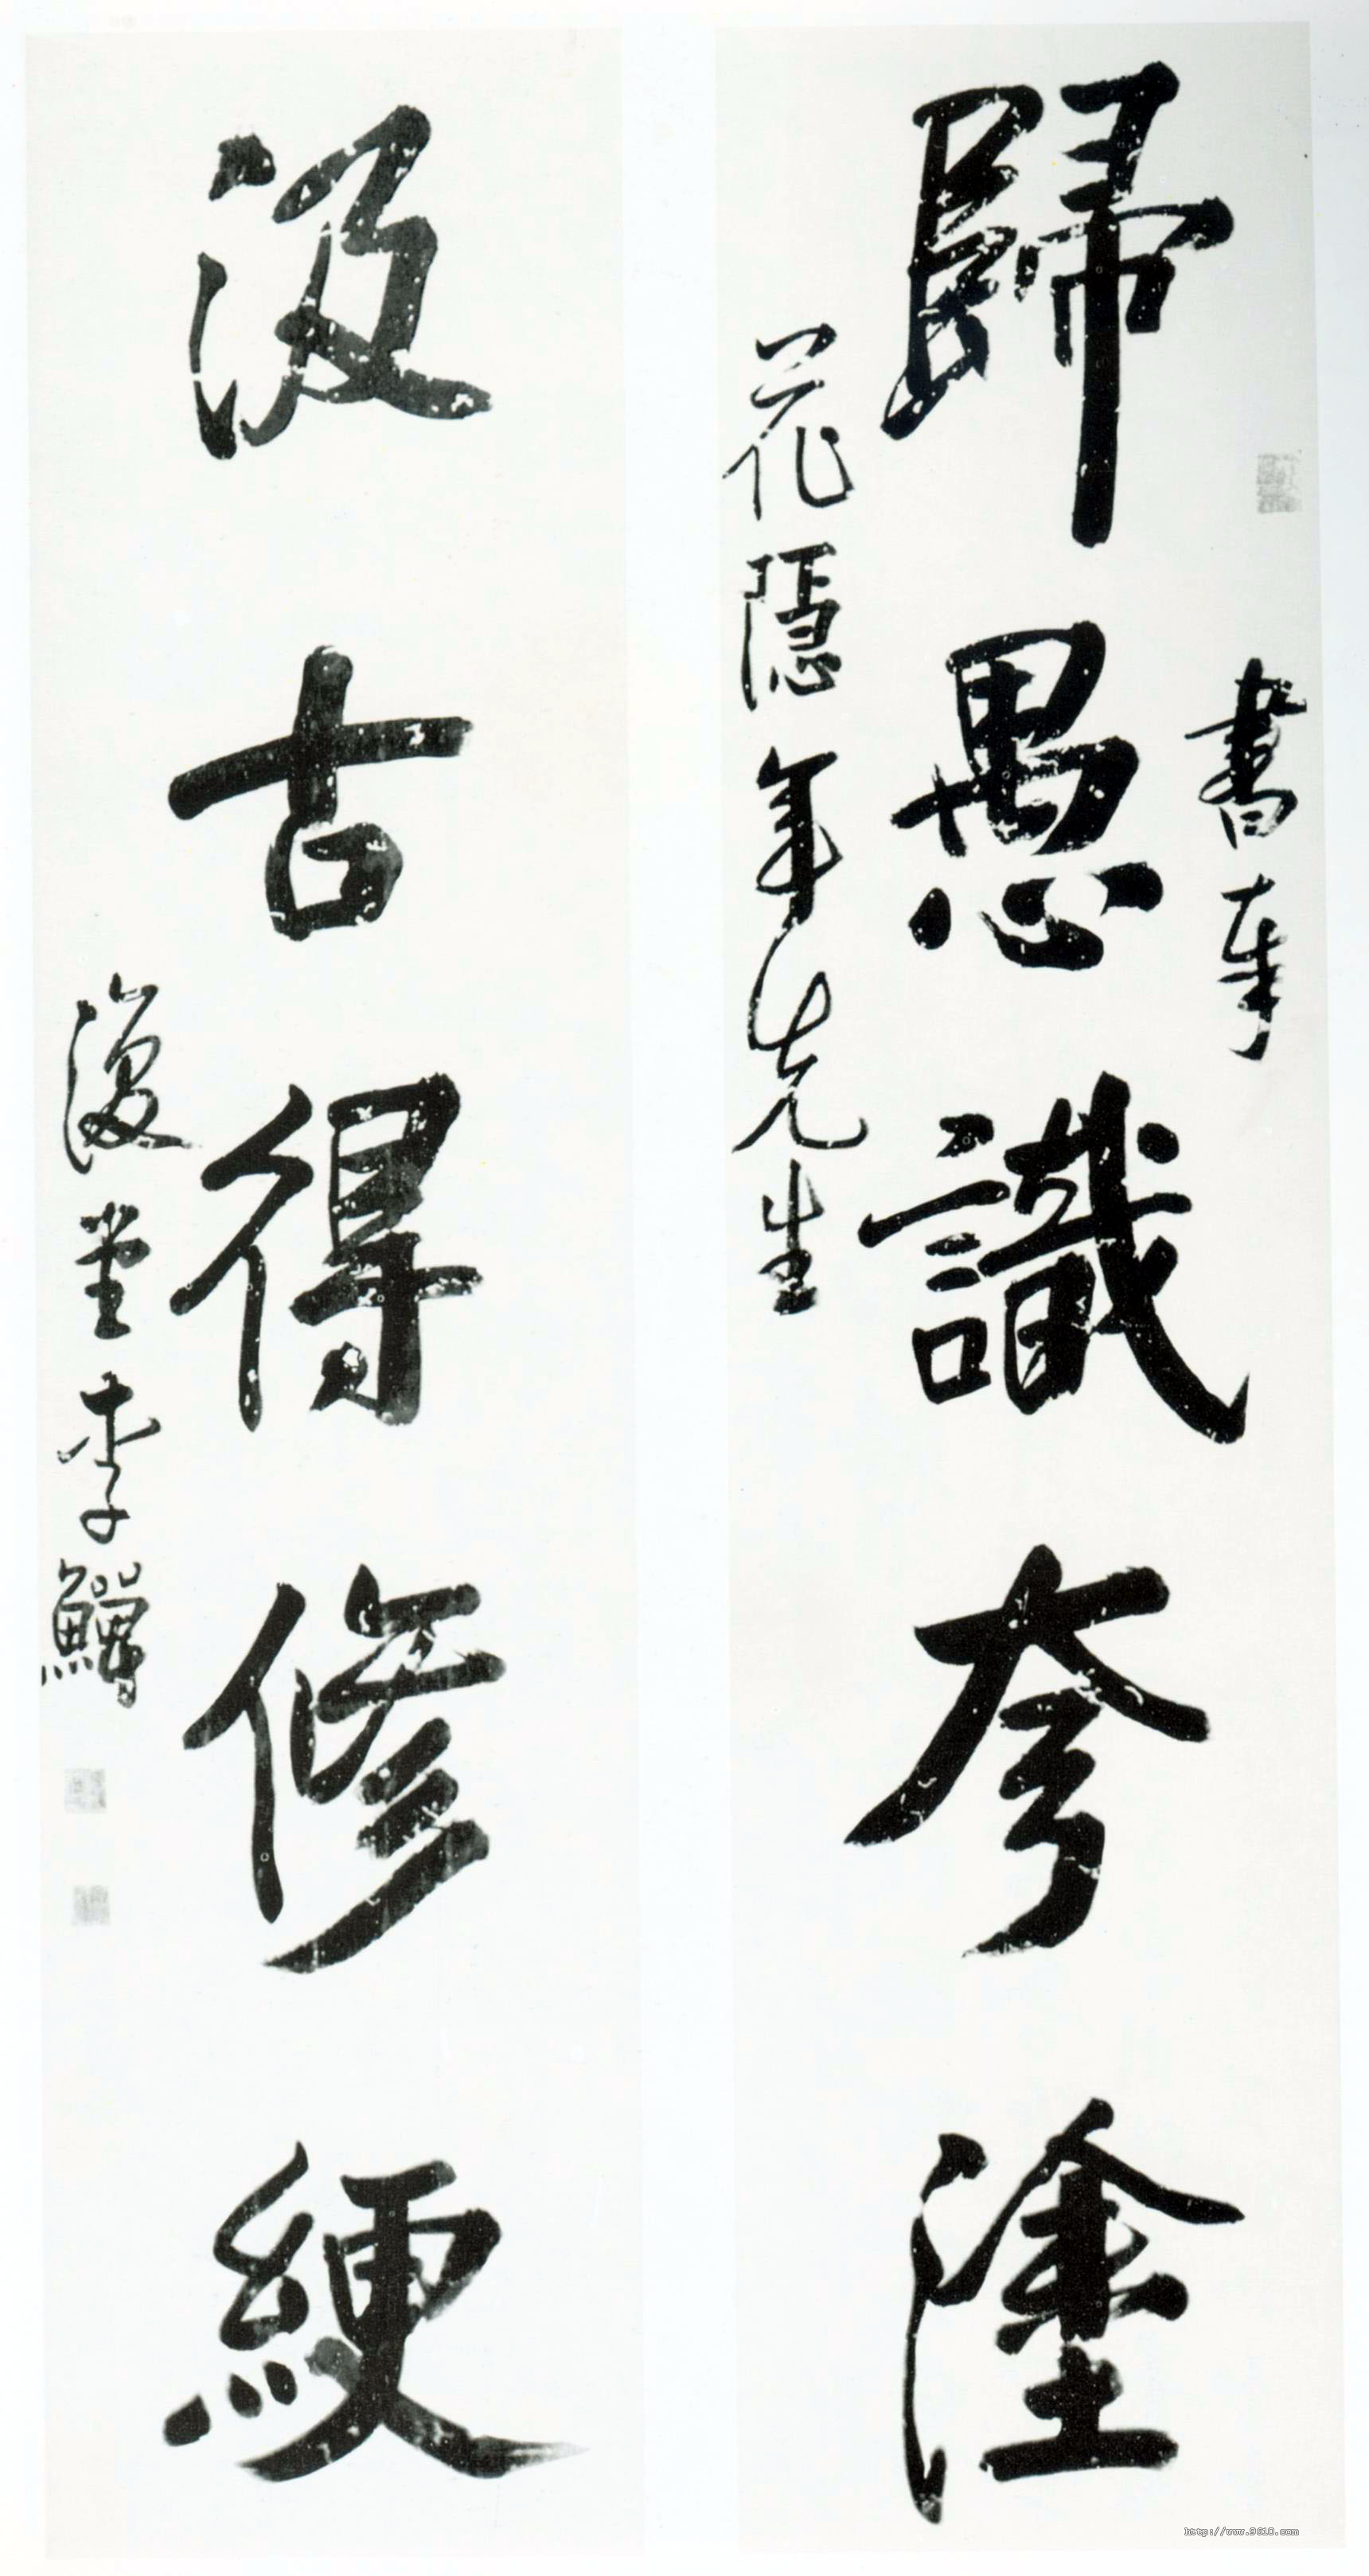 書奉
歸愚識夸塗
花隱年先生
汲古得修綆
復堂李鱓
http://www.9610.com